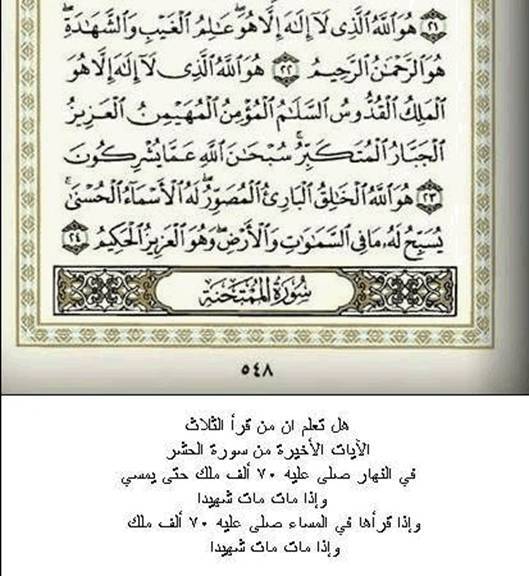 ﴿٢١﴾ هُوَ ٱللَّهُ ٱلَّذِى لَآ إِلَـٰهَ إِلَّا هُوَ ۖ عَـٰلِمُ ٱلْغَيْبِ وَٱلشَّهَـٰدَةِ ۖ
هُوَ ٱلرَّحْمَـٰنُ ٱلرَّحِيمُ ﴿٢٢﴾ هُوَ ٱللَّهُ ٱلَّذِى لَآ إِلَـٰهَ إِلَّا هُوَ
ٱلْمَلِكُ ٱلْقُدُّوسُ ٱلسَّلَـٰمُ ٱلْمُؤْمِنُ ٱلْمُهَيْمِنُ ٱلْعَزِيزُ
ٱلْجَبَّارُ ٱلْمُتَكَبِّرُ ۚ سُبْحَـٰنَ ٱللَّهِ عَمَّا يُشْرِكُونَ
﴿٢٣﴾ هُوَ ٱللَّهُ ٱلْخَـٰلِقُ ٱلْبَارِئُ ٱلْمُصَوِّرُ ۖ لَهُ ٱلْأَسْمَآءُ ٱلْحُسْنَىٰ ۚ
يُسَبِّحُ لَهُۥ مَا فِى ٱلسَّمَـٰوَٰتِ وَٱلْأَرْضِ ۖ وَهُوَ ٱلْعَزِيزُ ٱلْحَكِيمُ ﴿٢٤﴾
سُورَةُ المُمْتَحَنَةِ
٥٤٨
هل تعلم ان من قرأ الثلاث
الآيات الأخيرة من سورة الحشر
في النهار صلى عليه ٧٠ ألف ملك حتى يمسي
وإذا مات مات شهيدا
وإذا قرأها في المساء صلى عليه ٧٠ ألف ملك
وإذا مات مات شهيدا